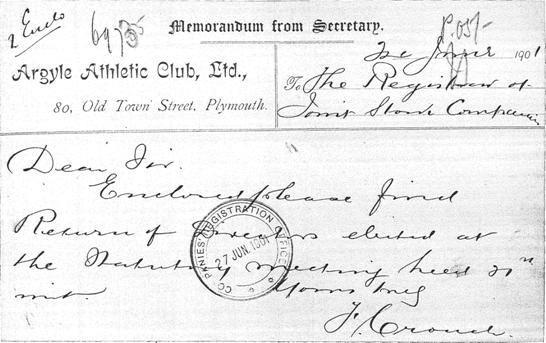 2 Enclo
69735
Memorandum from Secretary.
Post
Argyle Athletic Club, Ltd.,
80, Old Town Street, Plymouth.
June 1901
To The Registrar of
Joint Stock Companies
Dear Sir.
Enclosed please find
Return of Directors elected at
the Statutory meeting held
inst. Yours truly
F. Crouch.
COMPANIES' REGISTRATION OFFICE
27 JUN. 1901